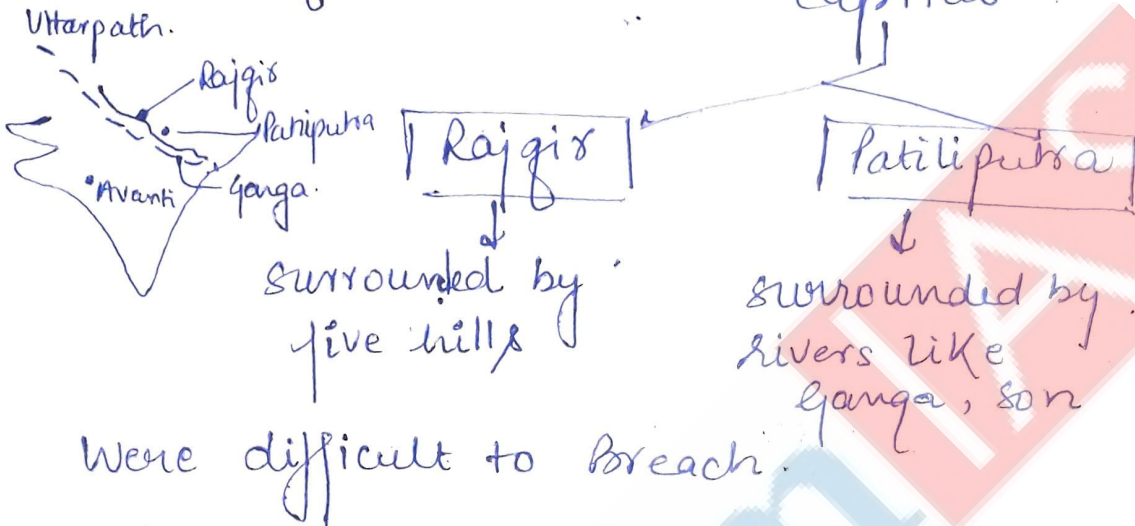 Uttarpath.
Rajgir
Patliputra
Avanti
Ganga.
Rajgir
Patiliputra
surrounded by
five hills
surrounded by
rivers like
Ganga, Son
Were difficult to Breach.